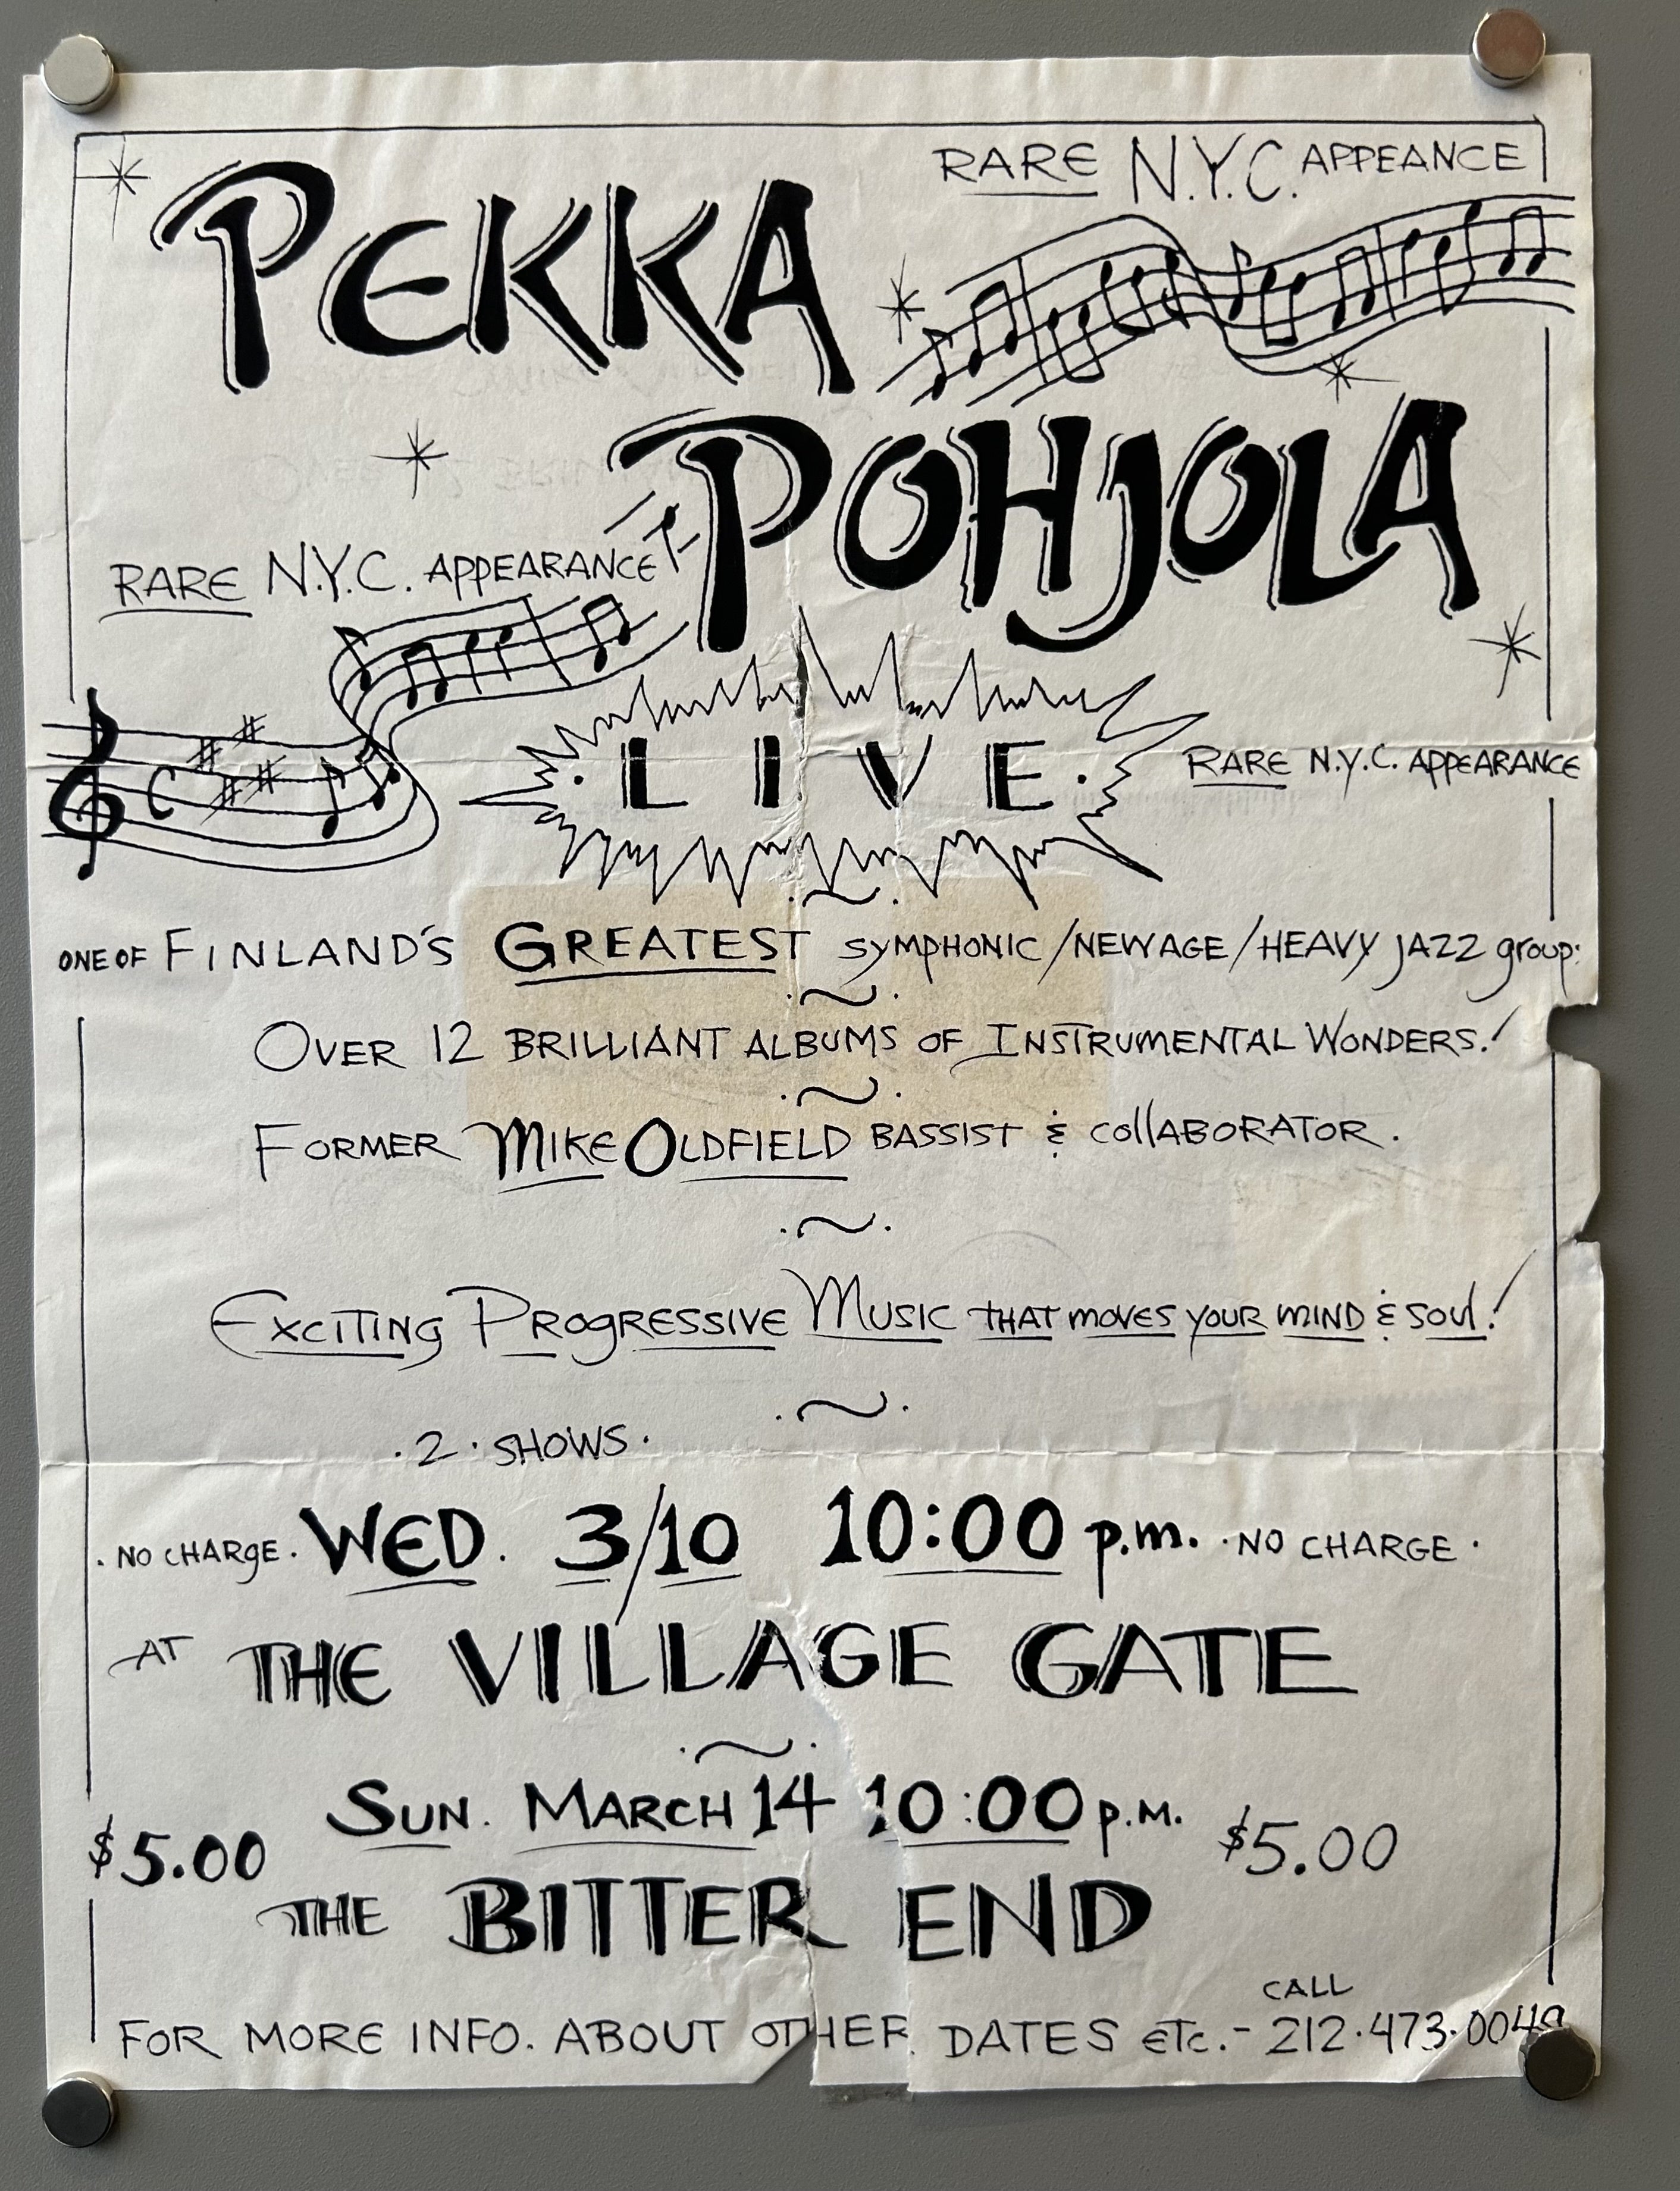 RARE N.Y.C. APPEANCE
PEKKA
POHJOLA
RARE N.Y.C. APPEARANCE
· L I V E ·
RARE N.Y.C. APPEARANCE
ONE OF FINLAND'S GREATEST SYMPHONIC/NEW AGE/HEAVY JAZZ group:
OVER 12 BRILLIANT ALBUMS OF INSTRUMENTAL WONDERS!
FORMER MIKE OLDFIELD BASSIST & COllABORATOR.
EXCITING PROgRESSIVE MUSIC THAT MOVES YOUR MIND & SOUl!
· 2 · SHOWS ·
· NO CHARgE · WED. 3/10 10:00 p.m. · NO CHARGE ·
AT THE VILLAGE GATE
SUN. MARCH 14 10:00 p.M.
$5.00 $5.00
THE BITTER END
CALL
FOR MORE INFO. ABOUT OTHER DATES ETC. - 212·473·004